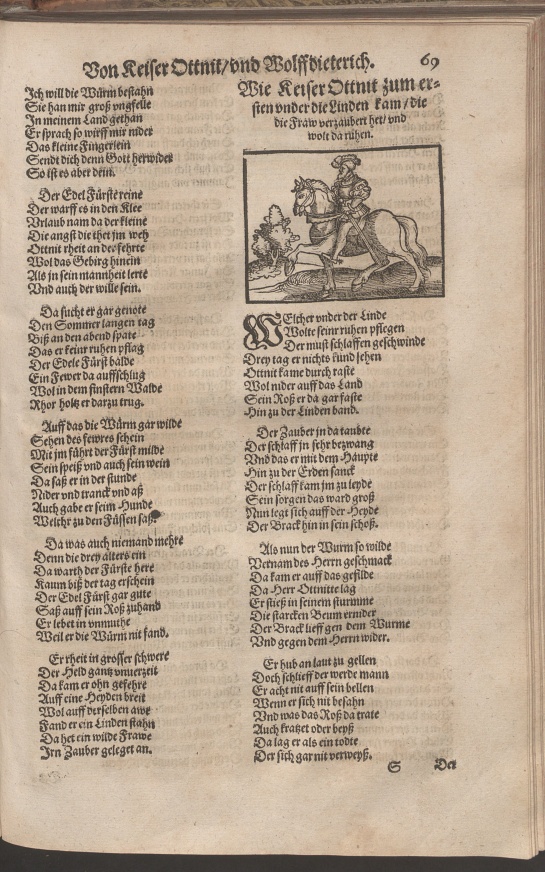 Von Keiser Ottnit/vnd Wolffdieterich. 69
Ich will die Würm bestahn
Sie han mir groß vngfelle
In meinem Land gethan
Er sprach so wirff mir nider
Das kleine Fingerlein
Sendt dich denn Gott herwider
So ist es aber dein.
Der Edel Fürste reine
Der warff es in den Klee
Vrlaub nam da der kleine
Die angst die thet jm weh
Ottnit rheit an der fehrte
Wol das Gebirg hinein
Als jn sein mannheit lerte
Vnd auch der wille sein.
Da sucht er gar genote
Den Sommer langen tag
Biß an den abend spate
Das er keinr ruhen pflag
Der Edele Fürst balde
Ein Fewer da auffschlug
Wol in dem finstern Walde
Rhor holtz er darzu trug.
Auff das die Würm gar wilde
Sehen des fewres schein
Mit jm führt der Fürst milde
Sein speiß vnd auch sein wein
Da saß er in der stunde
Nider vnd tranck vnd aß
Auch gabe er seim Hunde
Welchr zu den Füssen saß.
Da was auch niemand mehre
Denn die drey alters ein
Da warth der Fürste here
Kaum biß der tag erschein
Der Edel Fürst gar gute
Saß auff sein Roß zuhand
Er lebet in vnmuthe
Weil er die Würm nit fand.
Er rheit in grosser schwere
Der Held gantz vnuerzeit
Da kam er ohn gefehre
Auff eine Heyden breit
Wol auff derselben awe
Fand er ein Linden stahn
Da het ein wilde Frawe
Irn Zauber geleget an.
Wie Keiser Ottnit zum er-
sten vnder die Linden kam/die
die Fraw verzaubert het/vnd
wolt da rühen.
WElcher vnder der Linde
Wolte seinr ruhen pflegen
Der must schlaffen geschwinde
Drey tag er nichts kund sehen
Ottnit kame durch raste
Wol nider auff das Land
Sein Roß er da gar faste
Hin zu der Linden band.
Der Zauber jn da taubte
Der schlaff jn sehr bezwang
Vnd das er mit dem Haupte
Hin zu der Erden sanck
Der schlaff kam jm zu leyde
Sein sorgen das ward groß
Nun legt sich auff der Heyde
Der Brack hin in sein schoß.
Als nun der Wurm so wilde
Vernam des Herrn geschmack
Da kam er auff das gefilde
Da Herr Ottnitte lag
Er stieß in seinem sturmme
Die starcken Beum ernider
Der Brack lieff gen dem Wurme
Vnd gegen dem Herrn wider.
Er hub an laut zu gellen
Doch schlieff der werde mann
Er acht nit auff sein bellen
Wenn er sich nit besahn
Vnd was das Roß da trate
Auch kratzet oder beyß
Da lag er als ein todte
Der sich gar nit verweyß.
S Der